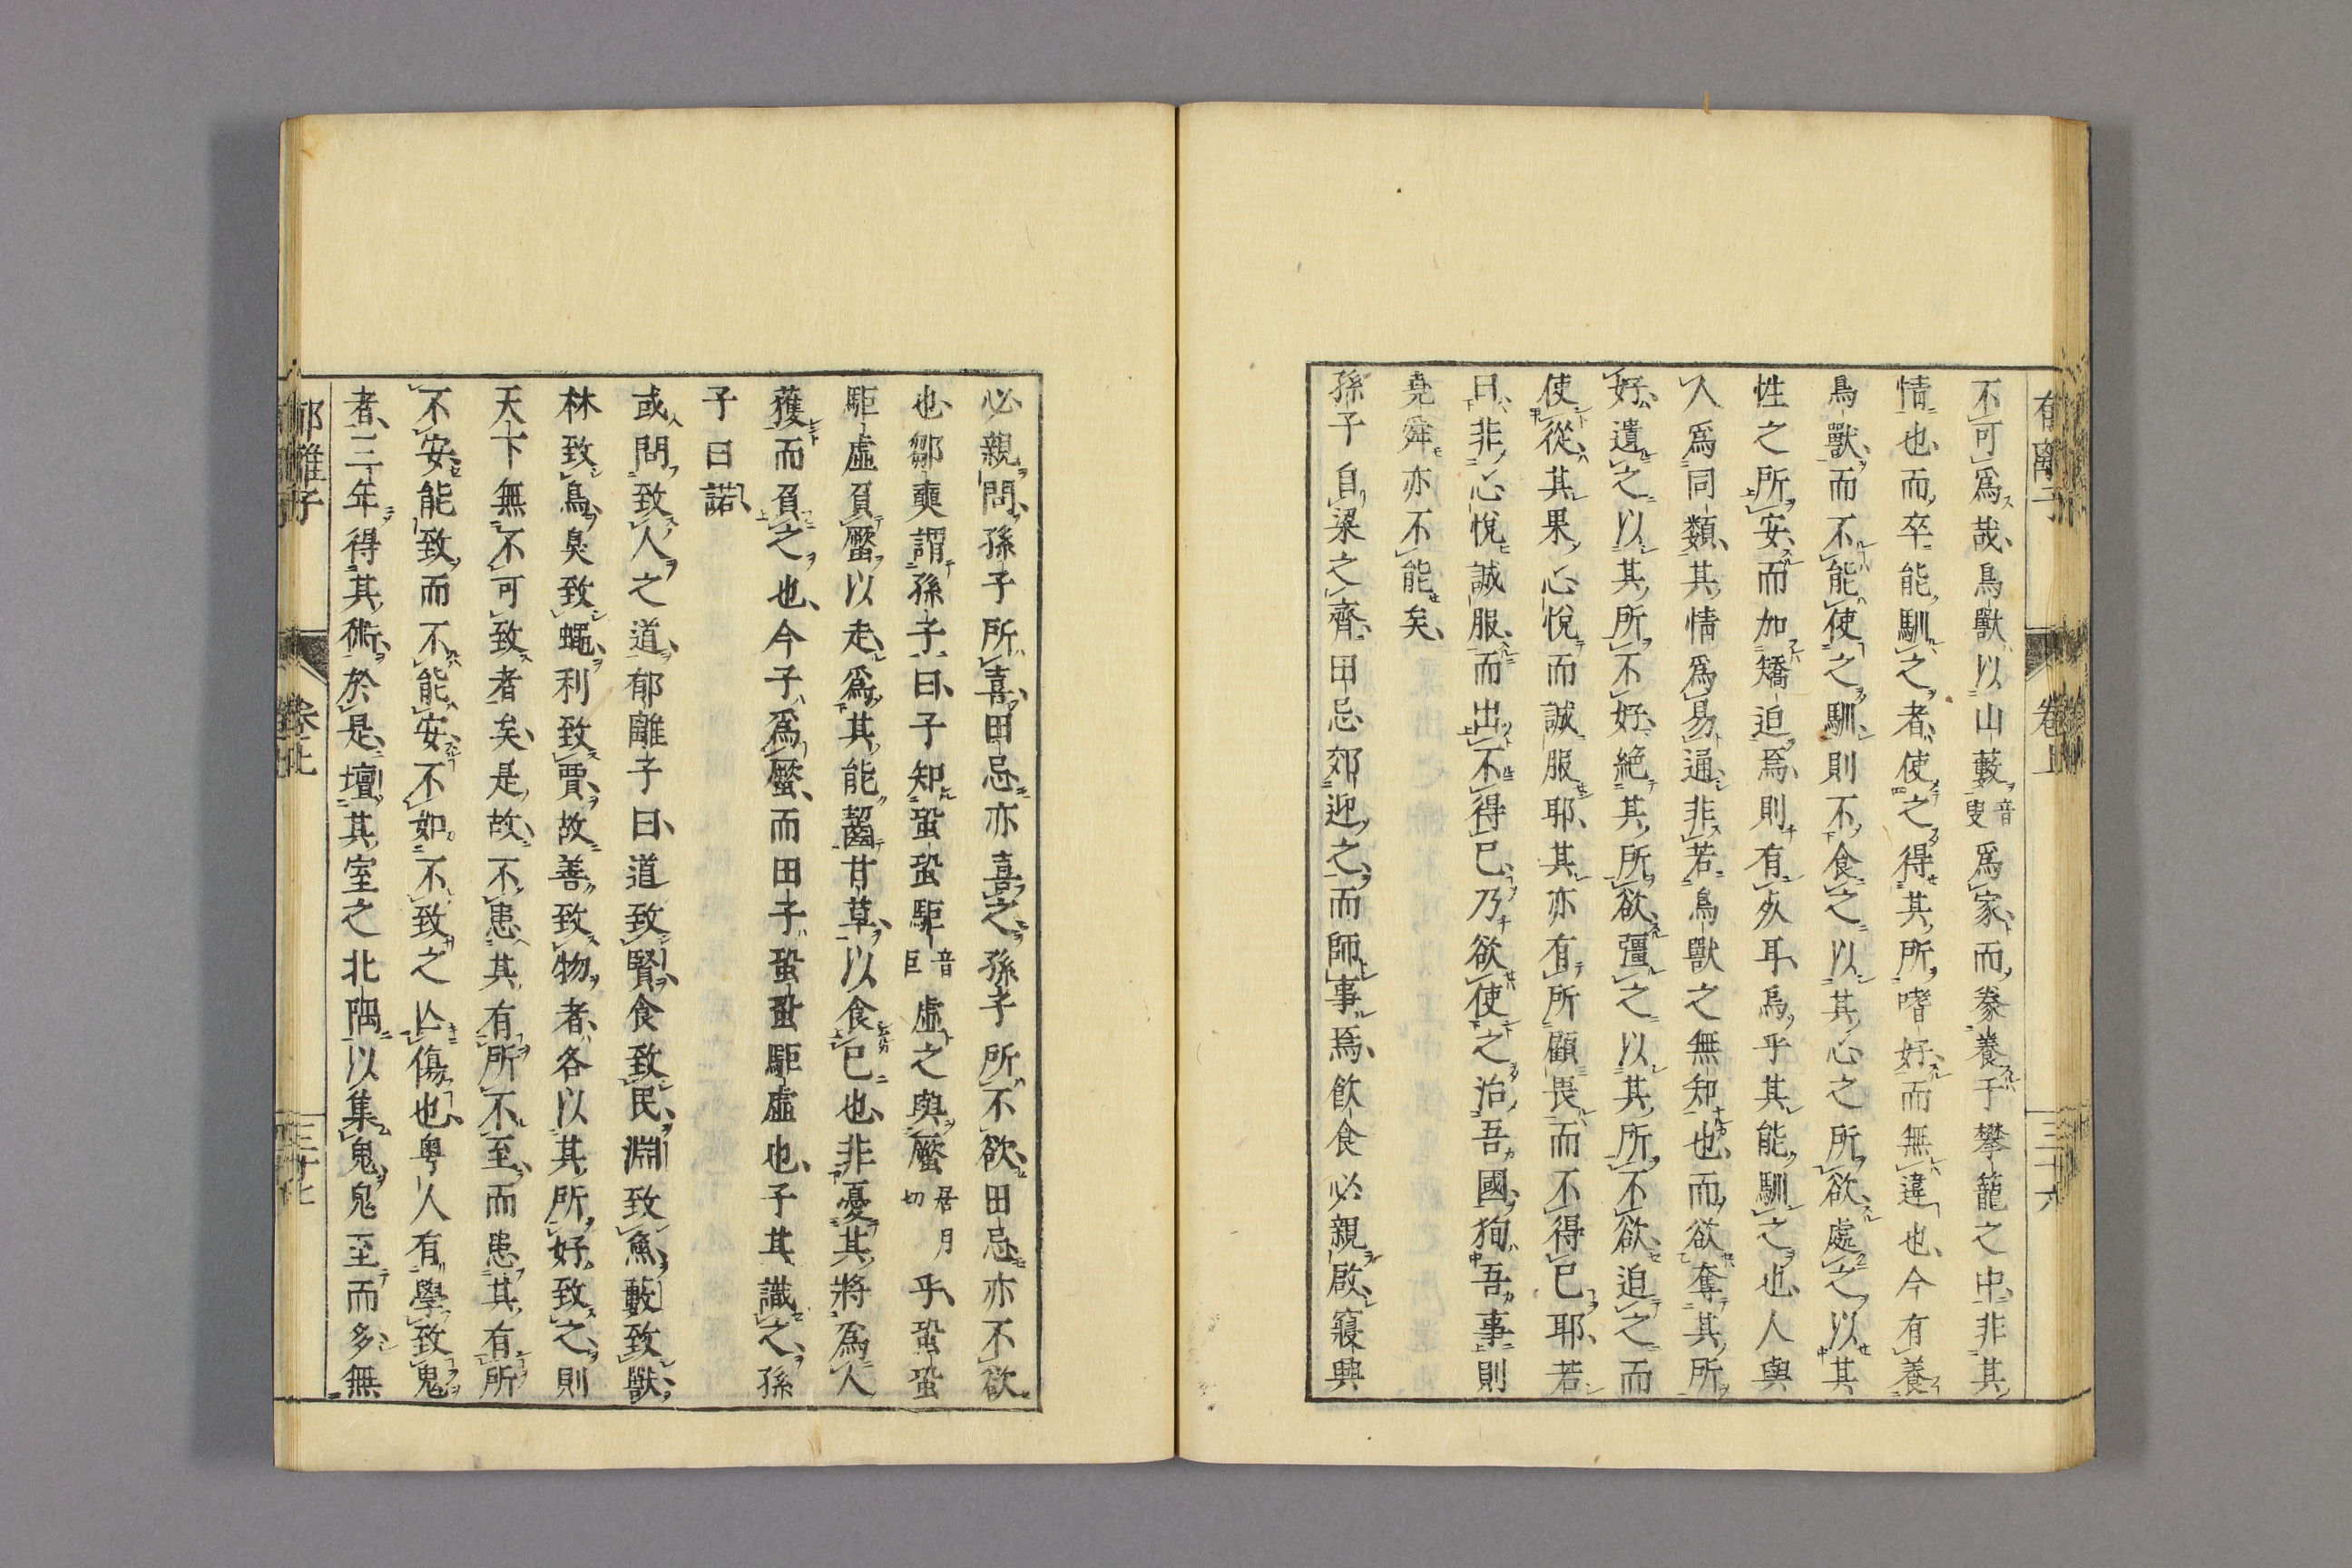 不可爲哉鳥獸以山藪音叟爲家而豢養于攀籠之中非其
情也而卒能馴之者使之得其所嗜好而無違也今有養
鳥獸而不能使之馴則不食之以其心之所欲處之以其
性之所安而加矯迫焉則有死耳烏乎其能馴之也人與
人爲同類其情爲易通非若鳥獸之無知也而欲奪其所
好遺之以其所不好絕其所欲彊之以其所不欲迫之而
使從其果心悅而誠服耶其亦有所顧畏而不得已耶若
曰非心悅誠服而出不得已乃欲使之治吾國狥吾事則
堯舜亦不能矣
孫子自梁之齊田忌郊迎之而師事焉飲食必親啟寢興
必親問孫子所喜田忌亦喜之孫子所不欲田忌亦不欲
也鄒奭謂孫子曰子知蛩蛩駏音巨虛之與蟨居月切乎蛩蛩
駏虛負蟨以走爲其能齧甘草以食已也非憂其將爲人
獲而負之也今子爲蟨而田子蛩蛩駏虛也子其識之孫
子曰諾
或問致人之道郁離子曰道致賢食致民淵致魚藪致獸
林致鳥臭致蠅利致賈故善致物者各以其所好致之則
天下無不可致者矣是故不患其有所不至而患其有所
不安能致而不能安不如不致之亾傷也粤人有學致鬼
者三年得其術於是壇其室之北隅以集鬼鬼至而多無
郁離子